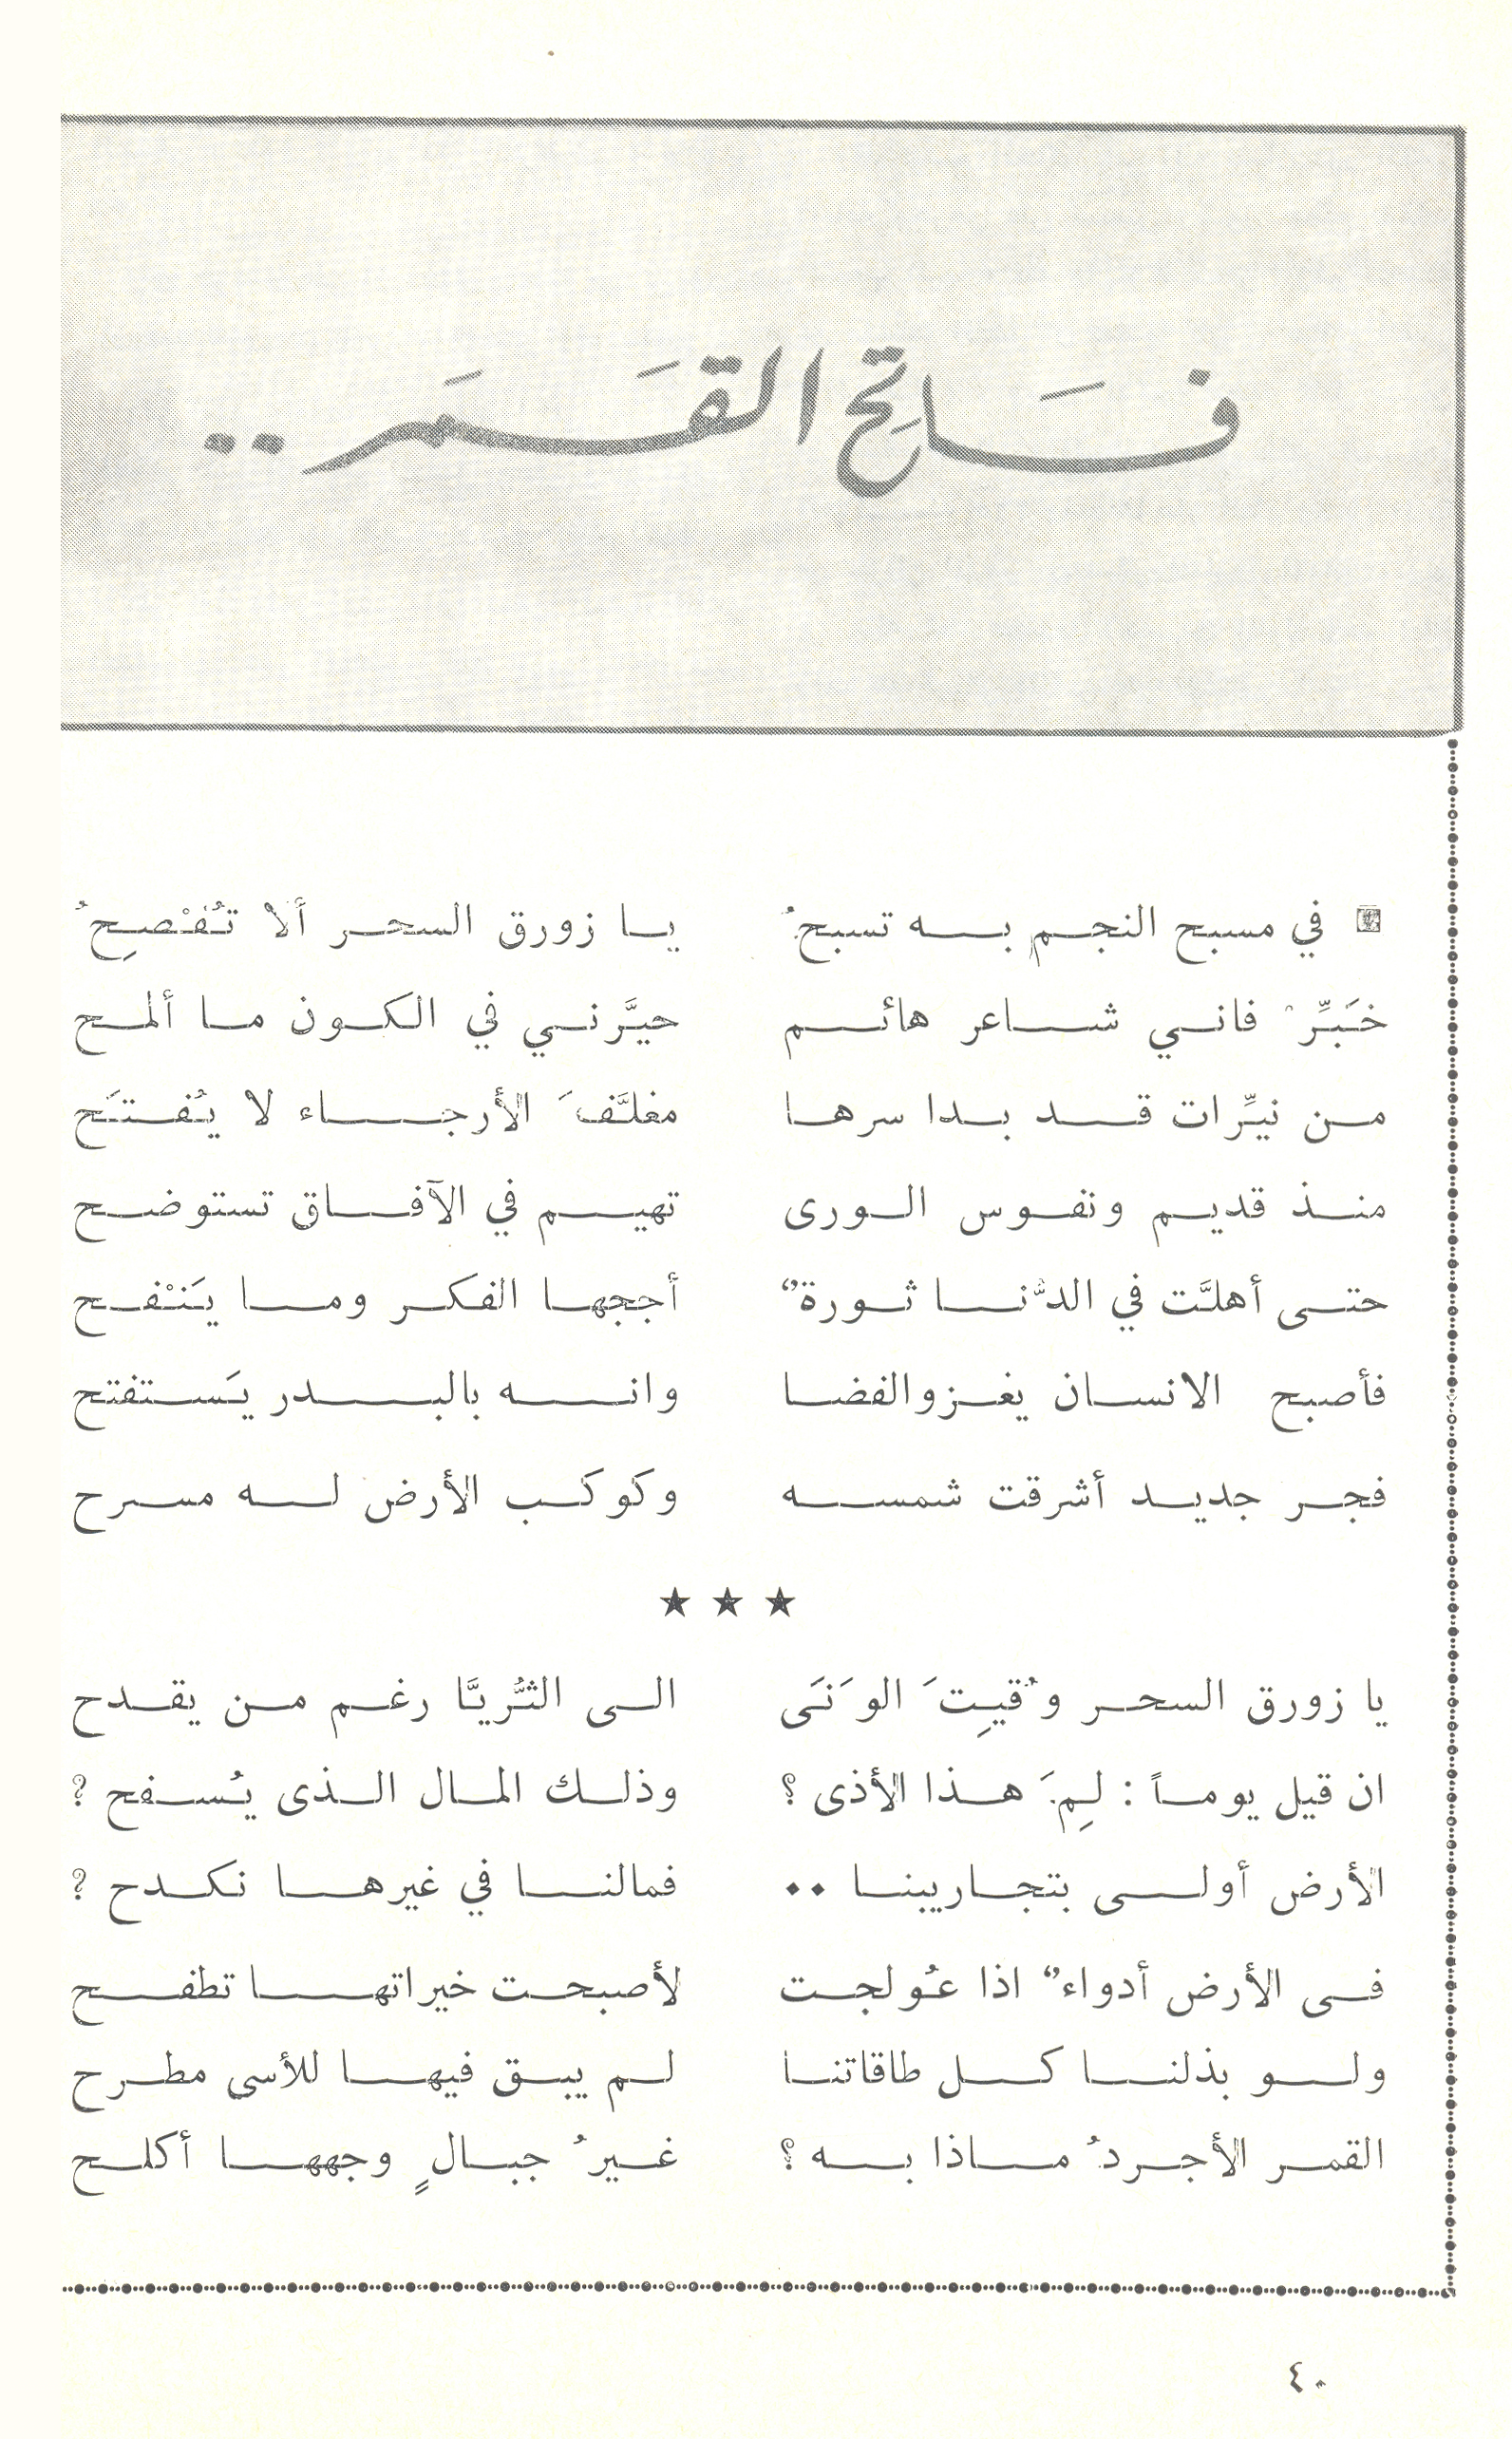 فَاتِح القَمَر ..
في مسبح النجم به تسبحُ يا زورق السحر ألا تُفْصِحُ
خَبِّرْ فاني شاعر هائم حيَّرني في الكون ما ألمح
من نيِّرات قد بدا سرها مغلَّفَ الأرجاء لا يُفتَح
منذ قديم ونفوس الورى تهيم في الآفاق تستوضح
حتى أهلَّت في الدُّنا ثورةٌ أججها الفكر وما يَنْفح
فأصبح الانسان يغزو الفضا وانه بالبدر يَستفتح
فجر جديد أشرقت شمسه وكوكب الأرض له مسرح
★ ★ ★
يا زورق السحر وُقيِتَ الوَنَى الى الثُّريَّا رغم من يقدح
ان قيل يوماً : لِمَ هذا الأذى ؟ وذلك المال الذى يُسفح ؟
الأرض أولى بتجاريبنا .. فمالنا في غيرها نكدح ؟
فى الأرض أدواءٌ اذا عُولجت لأصبحت خيراتها تطفح
ولو بذلنا كل طاقاتنا لم يبق فيها للأسى مطرح
القمر الأجردُ ماذا به ؟ غيرُ جبالٍ وجهها أكلح
٤٠